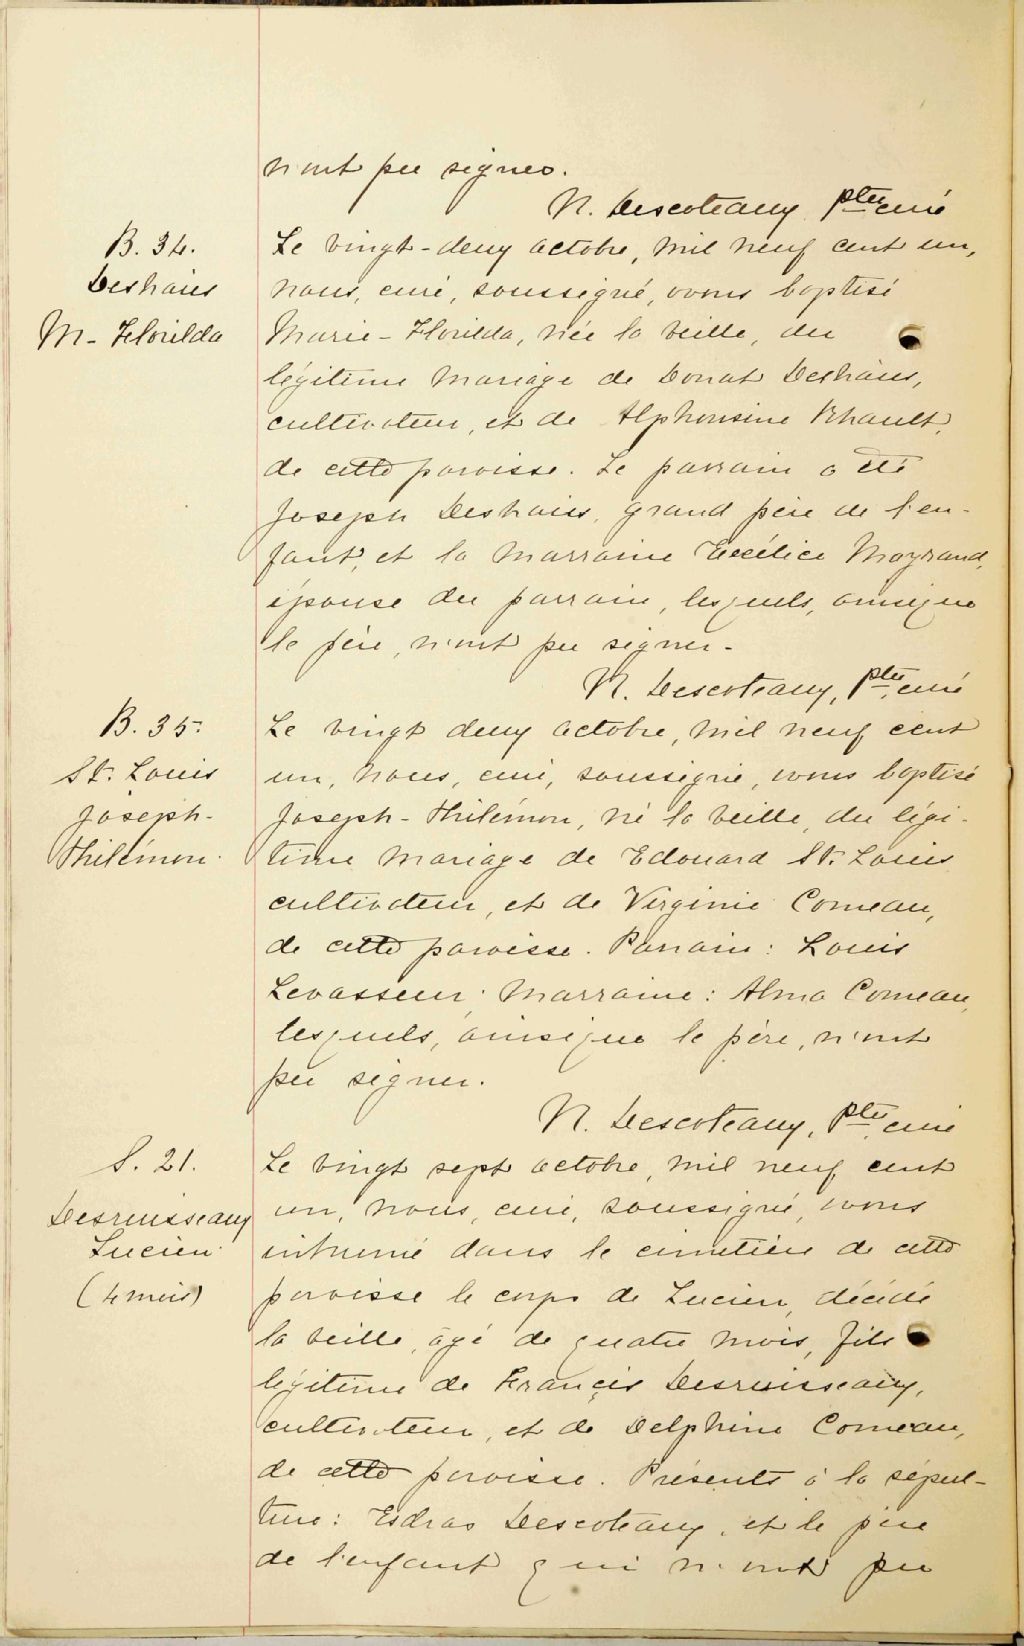 n'ont pu signer.
N. Descoteaux, Ptre curé
B. 34.
Deshaies
M- Florilda
Le vingt-deux octobre, mil neuf cent un,
nous, curé, soussigné, avons baptisé
Marie-Florilda, née la veille, du
légitime mariage de Donat Deshaies,
cultivateur, et de Alphonsine Rhault,
de cette paroisse. Le parrain a été
Joseph Deshaies, grand père de l'en-
fant, et la marraine Mayrand,
épouse du parrain, lesquels, ainsique
le père, n'ont pu signer-
N. Descoteaux, Ptre curé
B. 35.
St. Louis
Joseph-
Philémon.
Le vingt deux octobre, mil neuf cent
un, nous, curé, soussigné, avons baptisé
Joseph-Philémon, né la veille, du légi-
time mariage de Edouard St. Louis
cultivateur, et de Virginie Comeau,
de cette paroisse. Parrain: Louis
Levasseur; Marraine: Alma Comeau,
lesquels, ainsique le père, n'ont
pu signer.
N. Descoteaux, Ptre, curé
S. 21.
Desruisseaux
Lucien
(4 mois)
Le vingt sept octobre, mil neuf cent
un, nous, curé, soussigné, avons
inhumé dans le cimetière de cette
paroisse le corps de Lucien, décédé
la veille, âgé de quatre mois, fils
légitime de Francis Desruisseaux,
cultivateur, et de Delphine Comeau,
de cette paroisse. Présents à la sépul-
ture: Esdras Descoteaux, et le père
de l'enfant qui n'ont pu